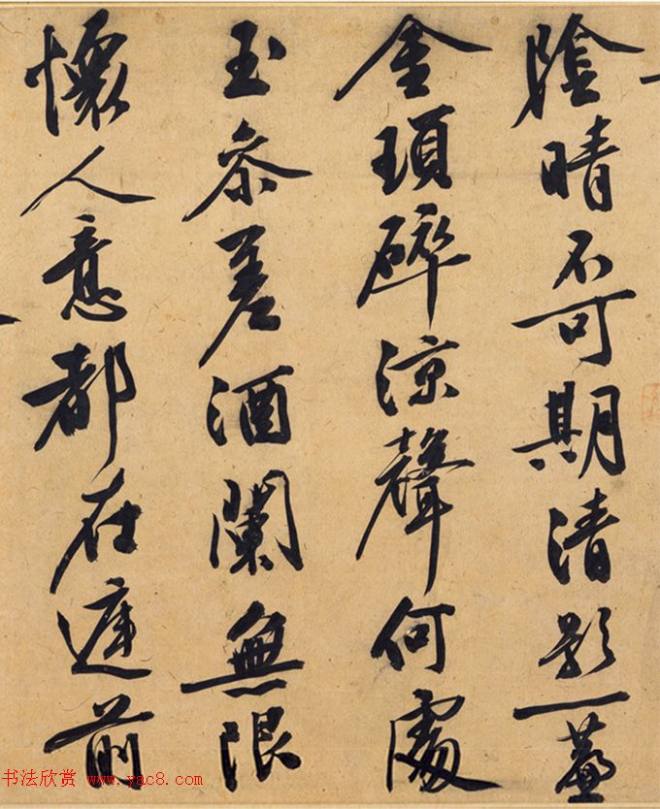 陰晴不可期清影一簾
金瑣碎涼聲何處
玉參差酒闌無限
懷人意都在遲前
书法欣赏 www.yac8.com